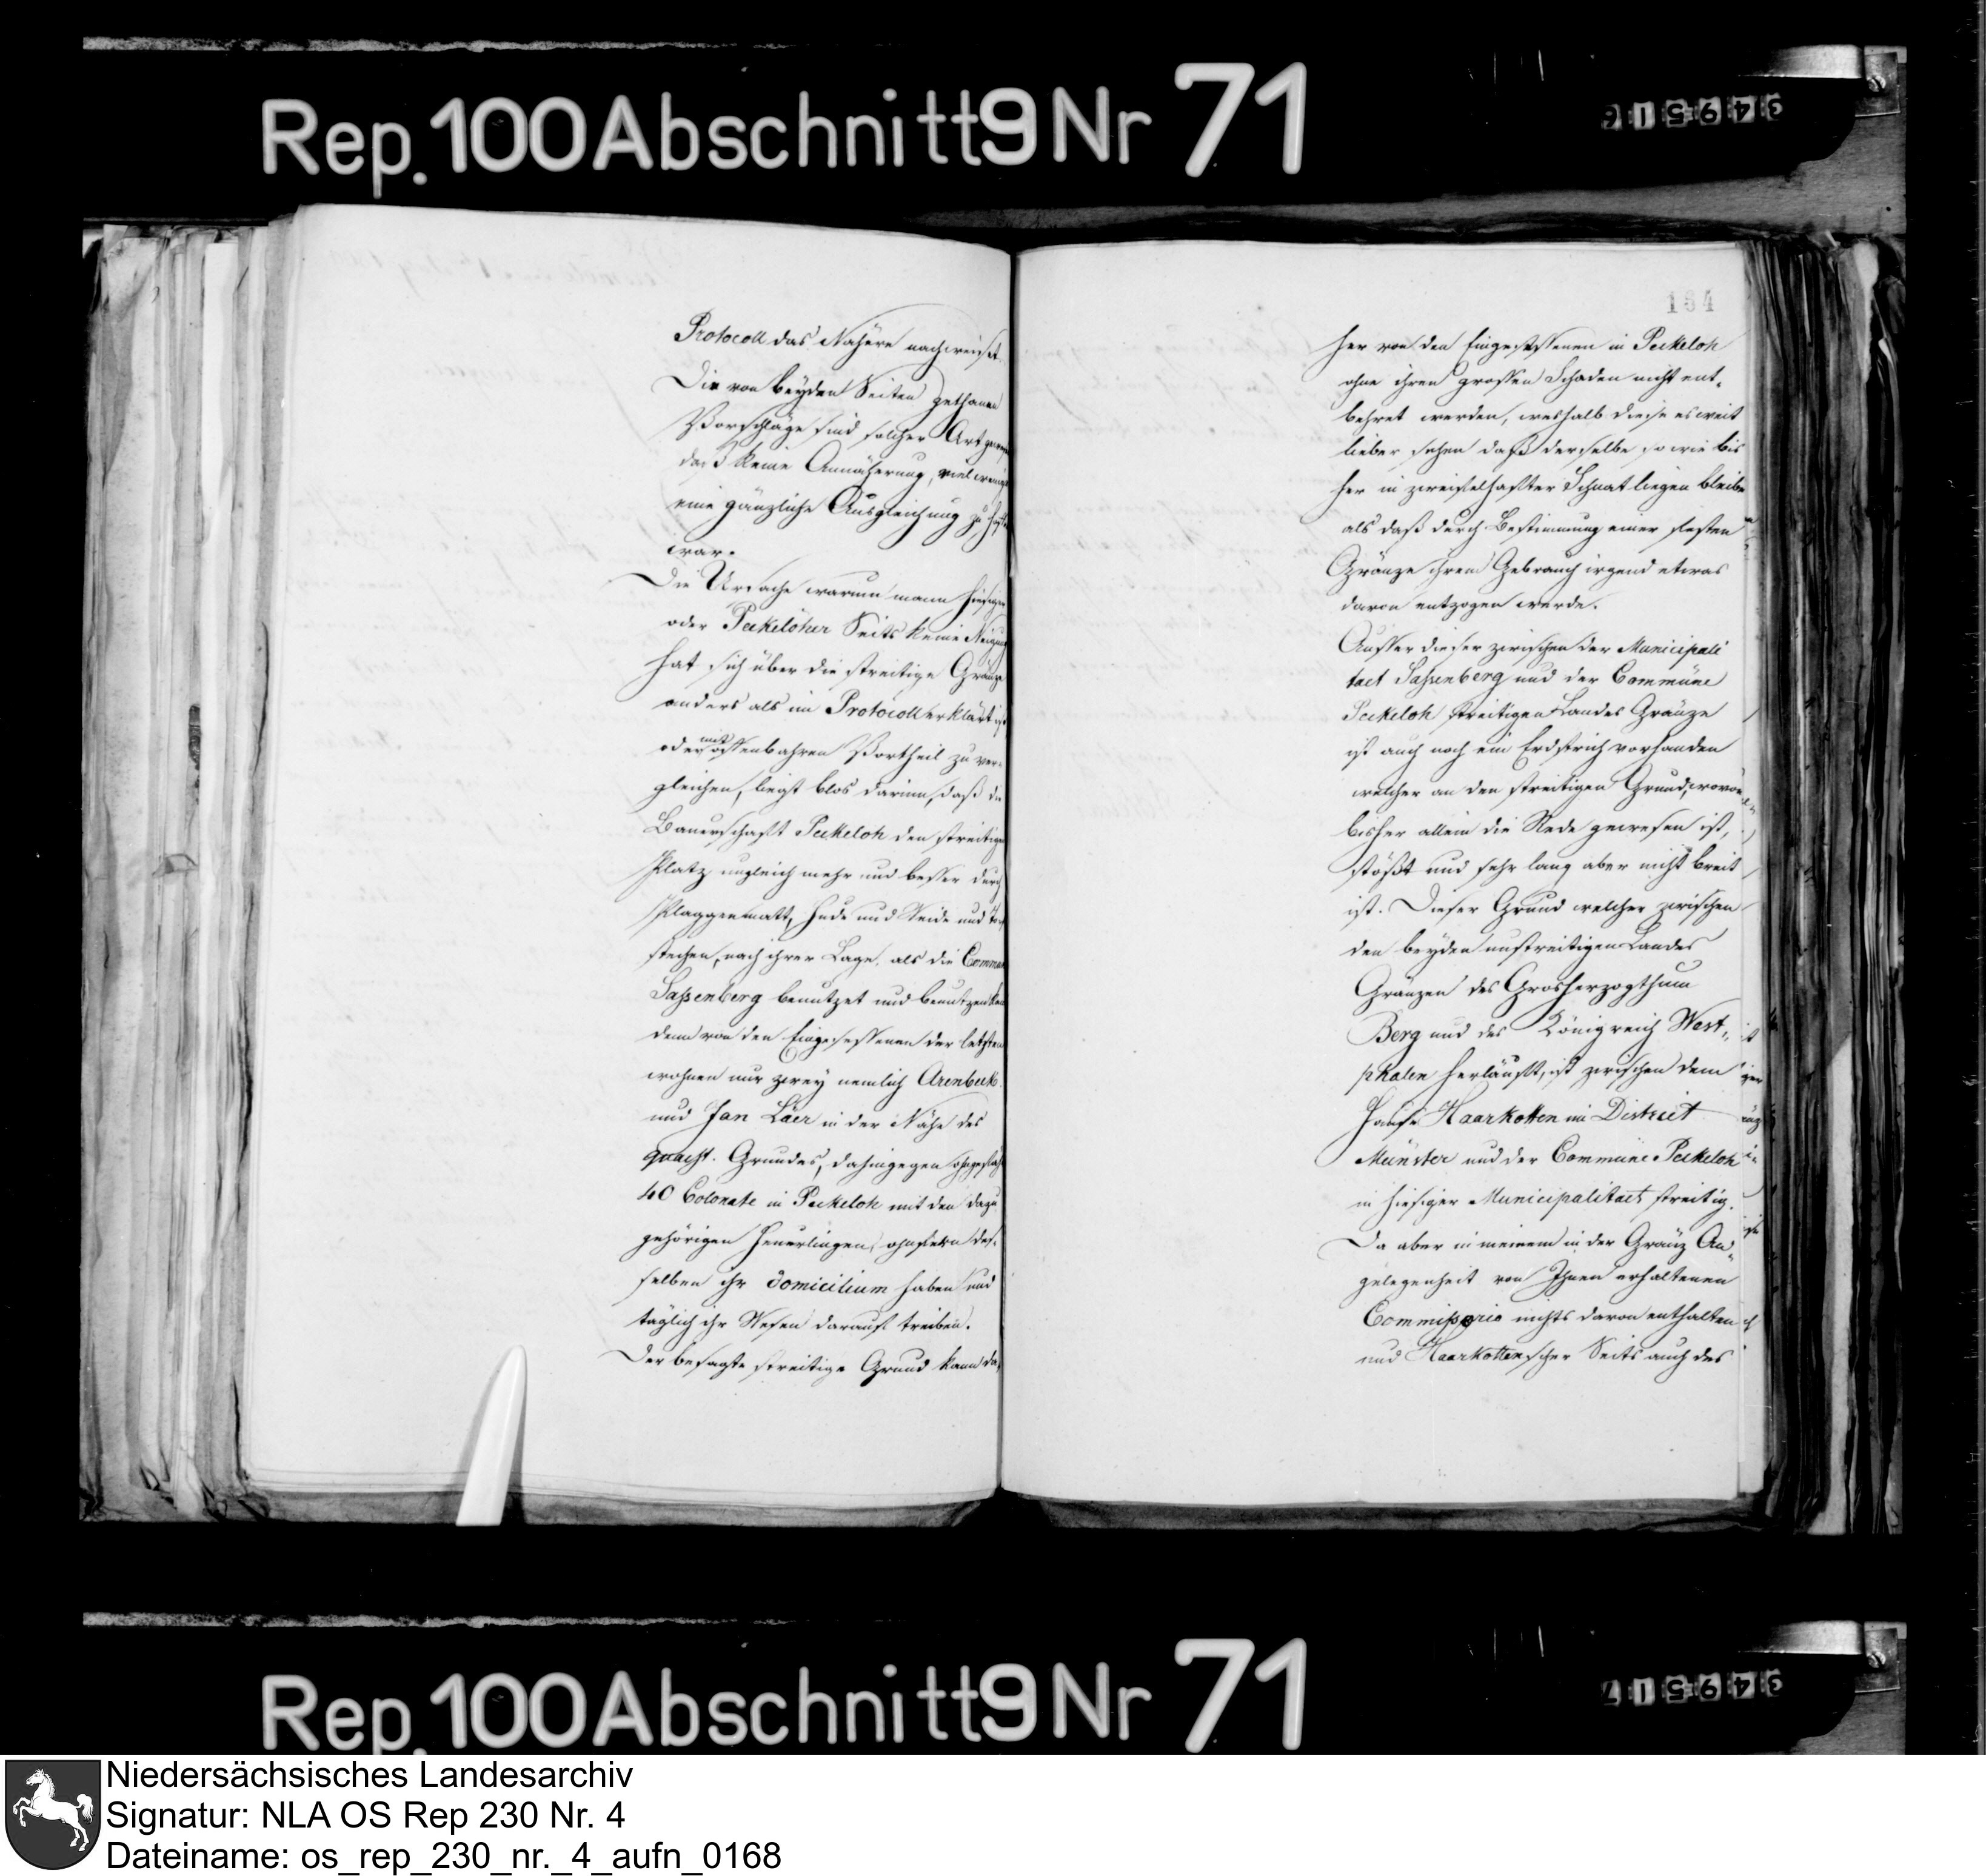 Rep. 100 Abschnitt 9 Nr 71
349516
Protocoll das Nähere nachweiset.
Die von beyden Seiten gethanen
Vorschläge sind solcher Art gewesen
daß keine Annäherung, viel weniger
eine gänzliche Ausgleichung zu hoffen
war.
Die Ursache warum mann hiesiger
oder Peckeloher Seits keine Neigung
hat sich über die streitige Gränze
anders als im Protocoll erklärt ist
oder mit offenbahren Vortheil zu ver-
gleichen, liegt blos darinn, daß die
Bauerschaft Peckeloh den streitigen
Platz ungleich mehr und besser durch
Plaggenmatt, Hude und Weide und
stechen, nach ihrer Lage, als die Commun
Saßenberg benutzet und benutzen kan
denn von den Eingesessenen der letzten
wohnen nur zwey nemlich Arenbeck
und Jan Läer in der Nähe des
quaest. Grundes, dahingegen ohngefähr
40 Colonate in Peckeloh mit den dazu
gehörigen Heuerlingen, ohnfern des-
selben ihr domicilium haben und
täglich ihr Wesen darauf treiben.
Der besagte streitige Grund kann da-
184
her von den Eingesessenen in Peckeloh
ohne ihren grossen Schaden nicht ent-
behret werden, weshalb diese es weit
lieber sehen daß derselbe so wie bis
her in zweifelhafter Schnat liegen bleibe
als daß durch Bestimmung einer festen
Gränze ihrem Gebrauch irgend etwas
davon entzogen werde.
Ausser dieser zwischen der Municipali
taet Saßenberg und der Commüne
Peckeloh streitigen Landes Gränze
ist auch noch ein Erdstrich vorhanden
welcher an den streitigen Grund, wovon
bisher allein die Rede gewesen ist,
stößt und sehr lang aber nicht breit
ist. Dieser Grund welcher zwischen
den beyden unstreitigen Landes
Gränzen des Grosherzogthum
Berg und des Königreich West-
phalen herläuft, ist zwischen dem
Hause Haarkotten im District
Münster und der Commüne Peckeloh
in hiesiger Municipalitaet streitig.
Da aber in meinem in der Gränz An-
gelegenheit von Ihnen erhaltenen
Commißorio nichts davon enthalten
und Haarkottenscher Seits auch des
Rep. 100 Abschnitt 9 Nr 71
349517
Niedersächsisches Landesarchiv
Signatur: NLA OS Rep 230 Nr. 4
Dateiname: os_rep_230_nr._4_aufn_0168